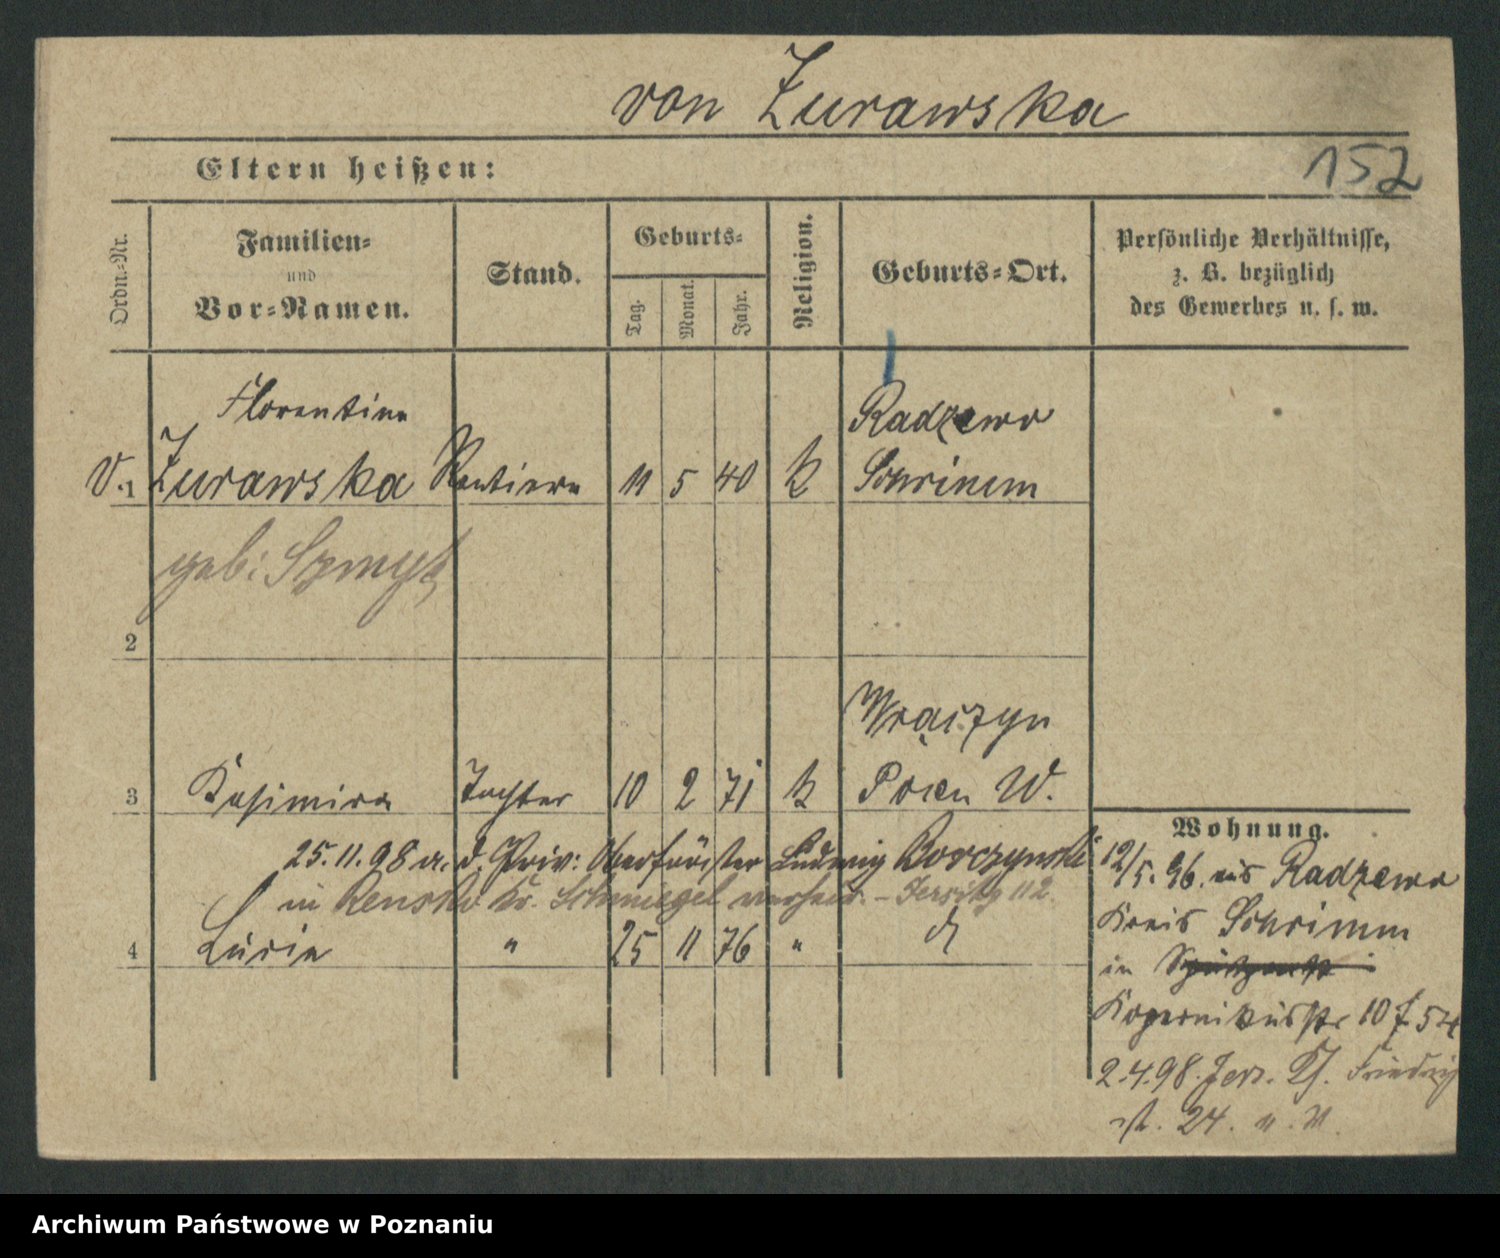 von Zurawska
152
Eltern heißen:
Ordn.=Nr.
Familien=
und
Vor=Namen.
Stand.
Geburts=
Tag.
Monat.
Jahr.
Religion.
Geburts=Ort.
Persönliche Verhältnisse,
z. B. bezüglich
des Gewerbes u. s. w.
Florentine Radzewo
v. 1 Zurawska Rentiere 11 5 40 k Schrimm
geb: Szmyt
2
Wrączyn
3 Kasimira Tochter 10 2 71 k Posen W.
25.11.98 a. d. Priv: Oberförster Ludwig Borczynski
in Kr. Schmiegel verheir. - Jersitz 112.
4 Lucie " 25 11 76 "
Wohnung.
12/5. 96. aus Radzewo
Kreis Schrimm
in
Kopernikusstr 10
2.4.98. Jers. Friedrich
str. 24.
Archiwum Państwowe w Poznaniu